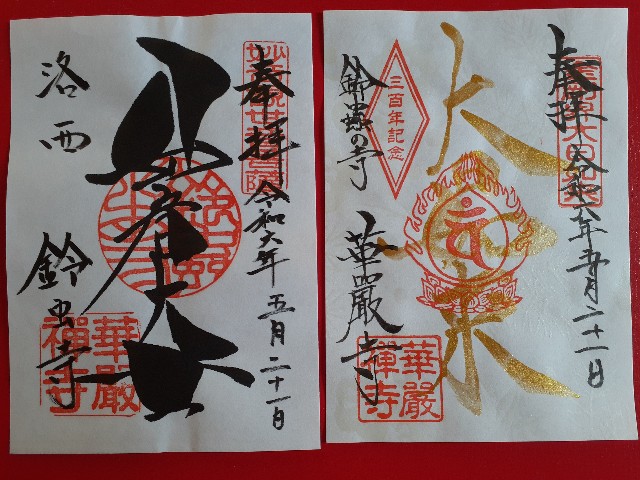 奉拝
令和六年
五月二十一日
洛西
鈴虫寺
華嚴
禪寺
奉拝
令和六年五月二十一日
大日如来
三百年記念
鈴蟲の寺
華嚴寺
華嚴
禪寺